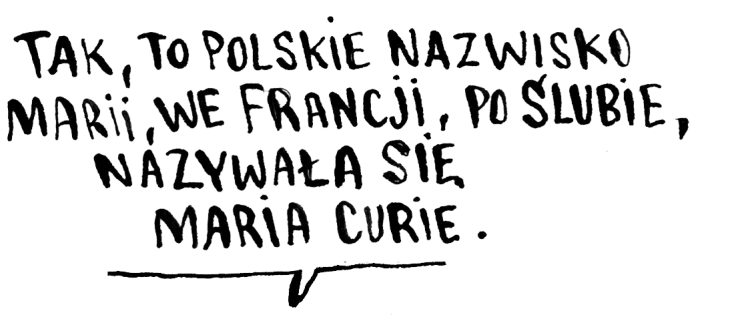 TAK, TO POLSKIE NAZWISKO
MARII, WE FRANCJI, PO ŚLUBIE,
NAZYWAŁA SIĘ
MARIA CURIE.